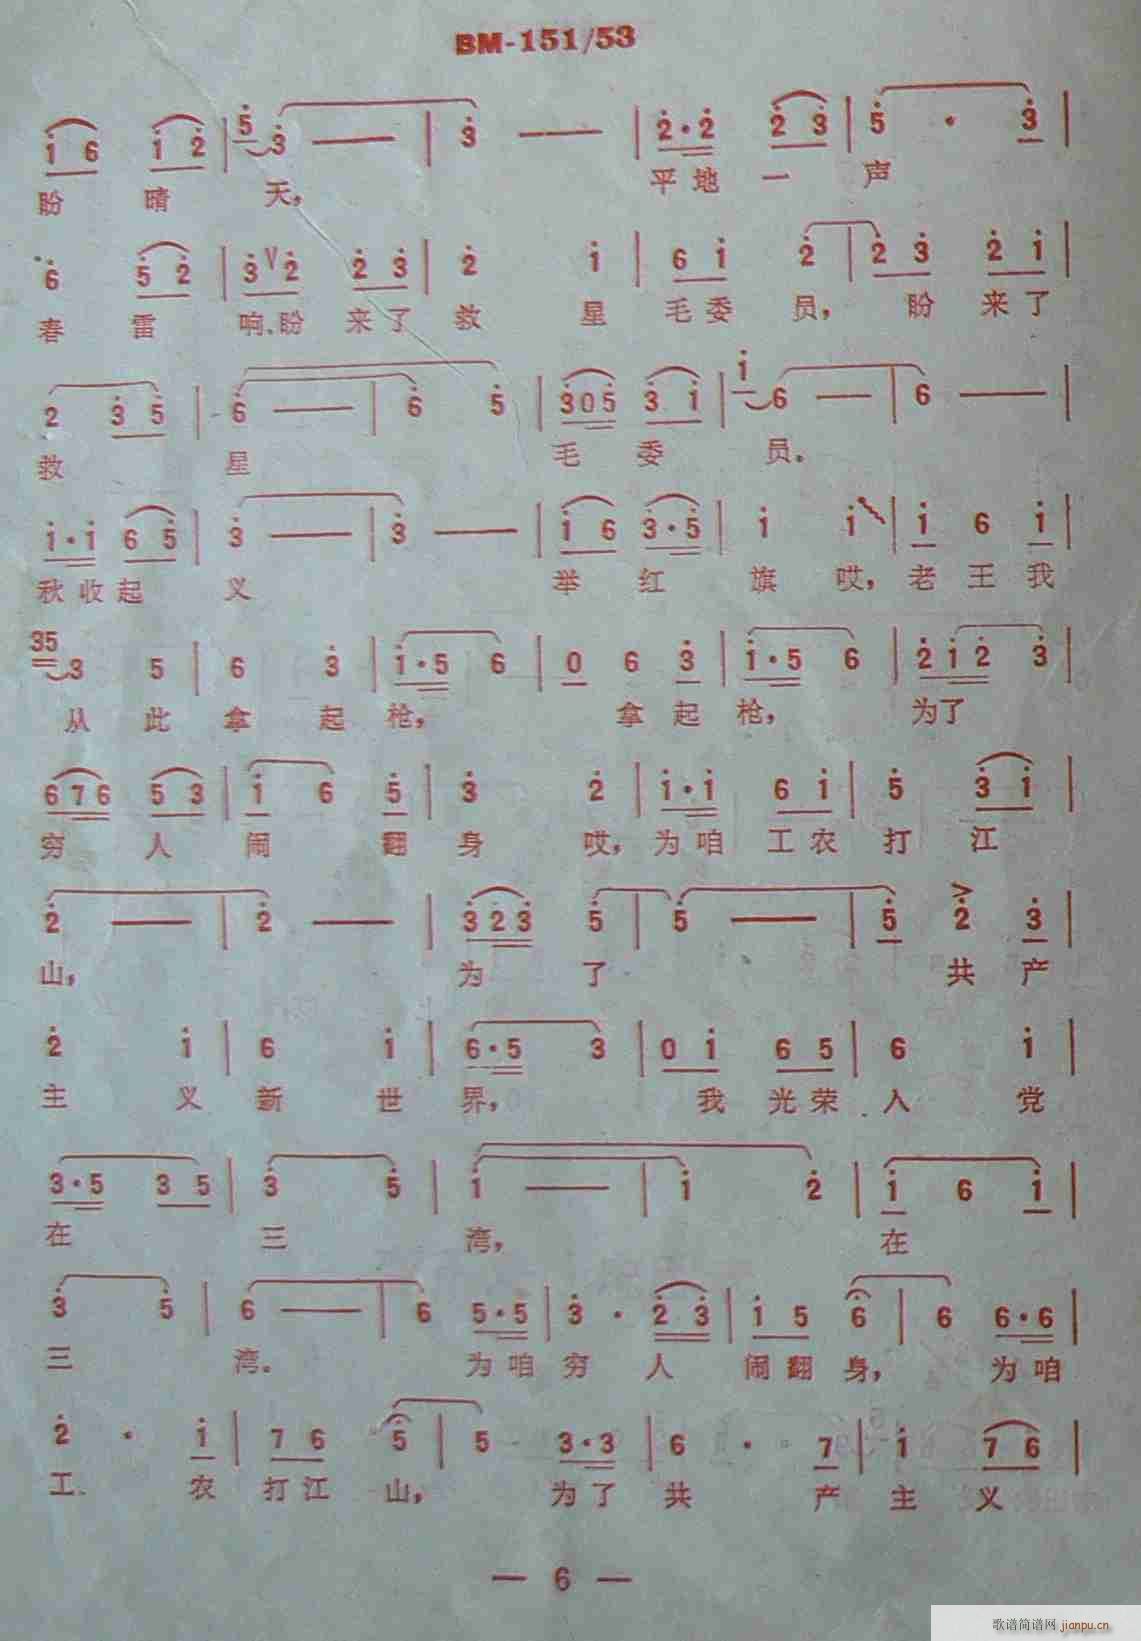 BM-151/53
盼 晴 天， 平 地 一 声
春 雷 响、盼 来 了 救 星 毛 委 员， 盼 来 了
救 星 毛 委 员。
秋 收 起 义 举 红 旗 哎，老 王 我
从 此 拿 起 枪， 拿 起 枪， 为了
穷 人 闹 翻 身 哎，为 咱 工 农 打 江
山， 为 了 共 产
主 义 新 世 界， 我 光 荣 入 党
在 三 湾， 在
三 湾。 为 咱 穷 人 闹 翻 身， 为 咱
工 农 打 江 山， 为 了 共 产 主 义
— 6 —
歌谱简谱网 jianpu.cn